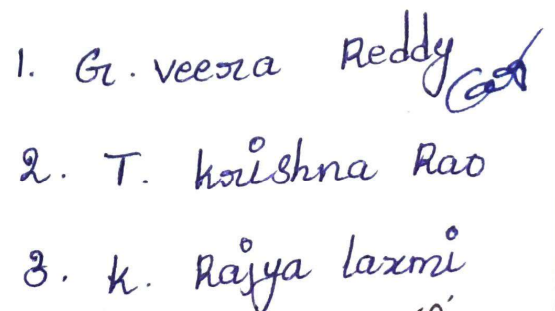 1. G. Veera Reddy
2. T. Krishna Rao
3. K. Rajya laxmi